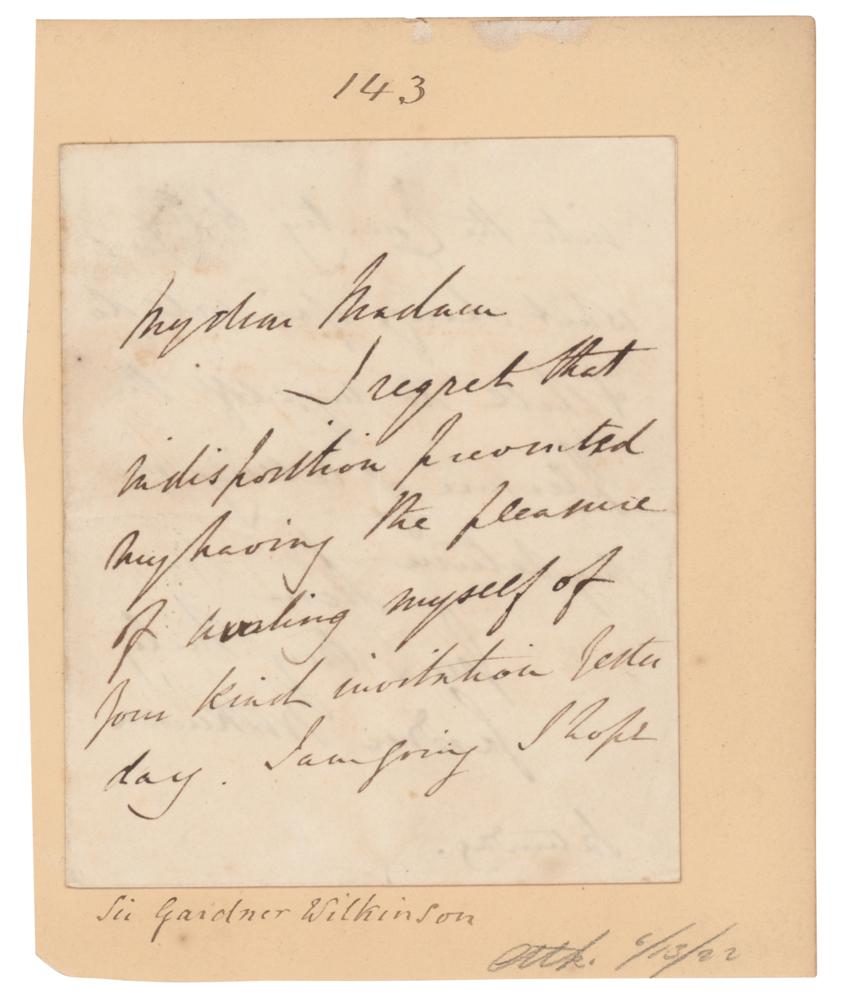 143
My dear Madam
I regret that
indisposition prevented
my having the pleasure
of availing myself of
your kind invitation yester
day. I am going I hope
Sir Gardner Wilkinson
6/13/22